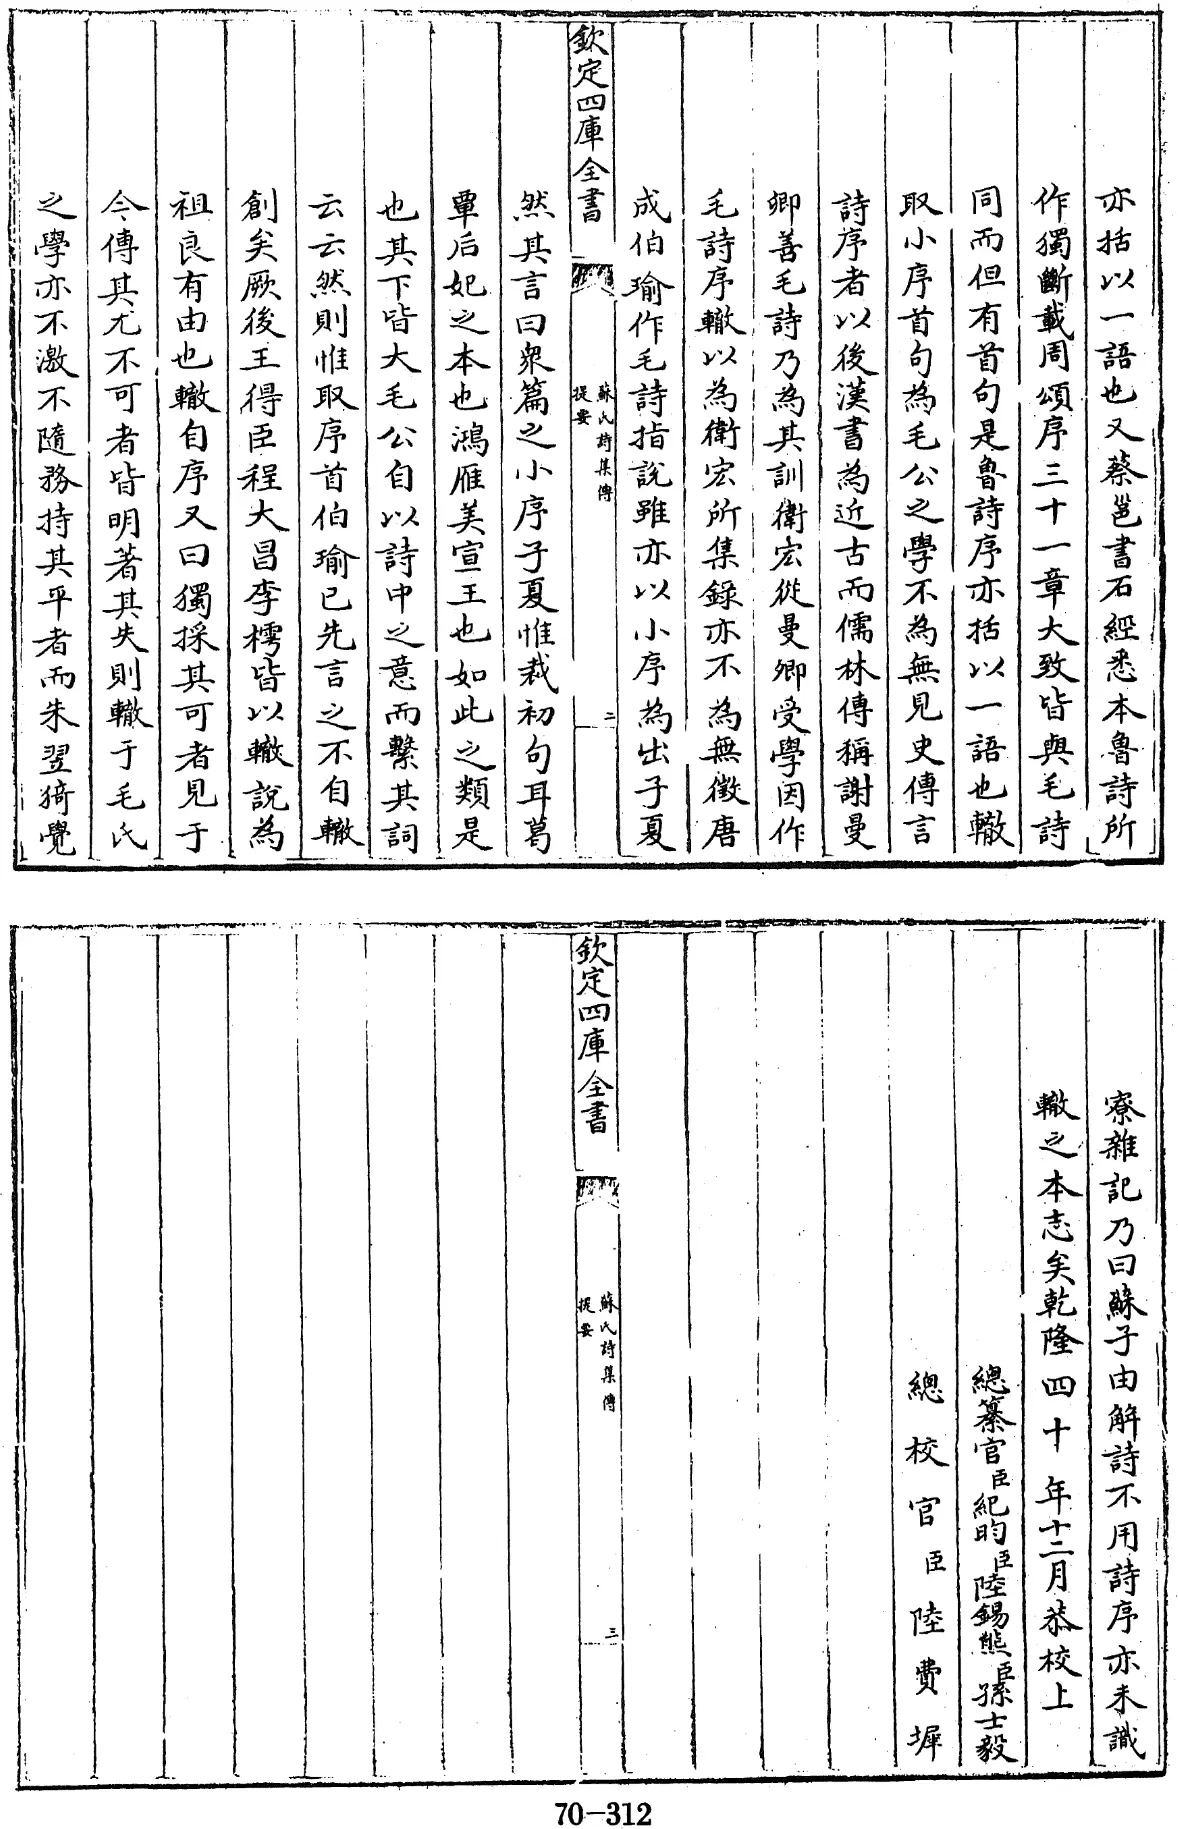 亦括以一語也又蔡邕書石經悉本魯詩所
作獨斷載周頌序三十一章大致皆與毛詩
同而但有首句是魯詩序亦括以一語也轍
取小序首句為毛公之學不為無見史傳言
詩序者以後漢書為近古而儒林傳稱謝曼
卿善毛詩乃為其訓衛宏從曼卿受學因作
毛詩序轍以為衛宏所集錄亦不為無徵唐
成伯瑜作毛詩指說雖亦以小序為出子夏
欽定四庫全書
蘇氏詩集傳
提要
二
然其言曰衆篇之小序子夏惟裁初句耳葛
覃后妃之本也鴻雁美宣王也如此之類是
也其下皆大毛公自以詩中之意而繫其詞
云云然則惟取序首伯瑜已先言之不自轍
創矣厥後王得臣程大昌李樗皆以轍說為
祖良有由也轍自序又曰獨採其可者見于
今傳其尤不可者皆明著其失則轍于毛氏
之學亦不激不隨務持其平者而朱翌猗覺
寮雜記乃曰蘇子由解詩不用詩序亦未識
轍之本志矣乾隆四十年十二月恭校上
總纂官臣紀昀臣陸錫熊臣孫士毅
總校官臣陸費墀
欽定四庫全書
蘇氏詩集傳
提要
三
70-312